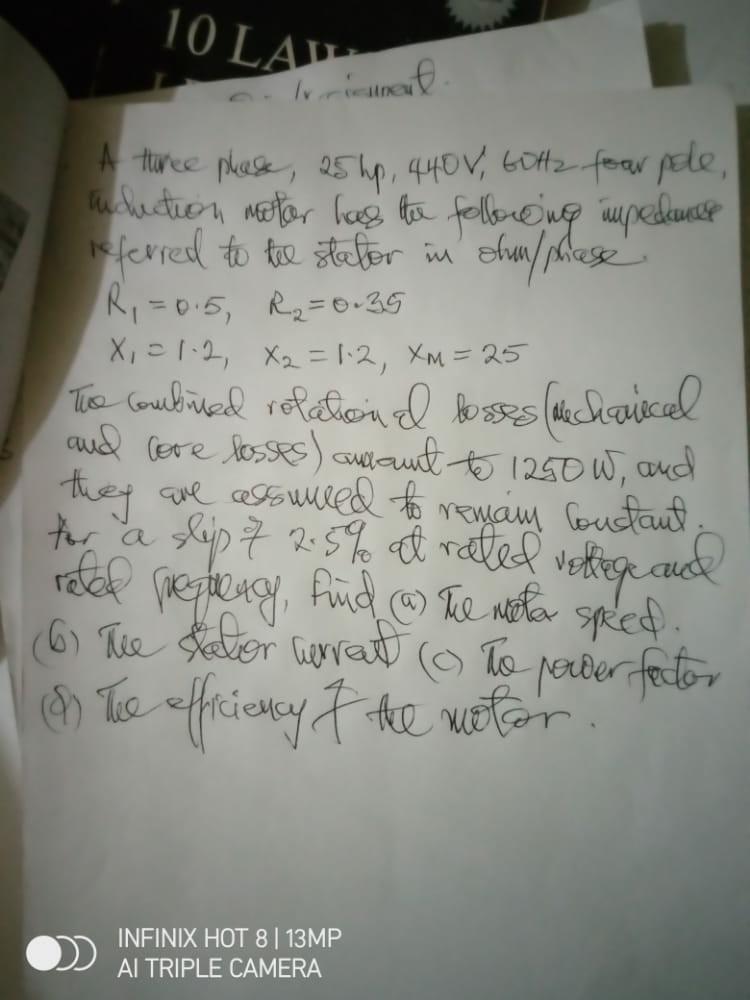 10 LAW
A three phase, 25hp, 440V, 60Hz four pole,
induction motor has the following impedance
referred to the stator in ohm/phase.
R₁ = 0.5, R₂ = 0.35
X₁ = 1.2, X₂ = 1.2, XM = 25
The combined rotational losses (mechanical
and core losses) amount to 1250W, and
they are assumed to remain constant.
for a slip of 2.5% at rated voltage and
rated frequency, find (a) The motor speed.
(b) The stator current (c) The power factor
(d) The efficiency of the motor.
INFINIX HOT 8 | 13MP
AI TRIPLE CAMERA